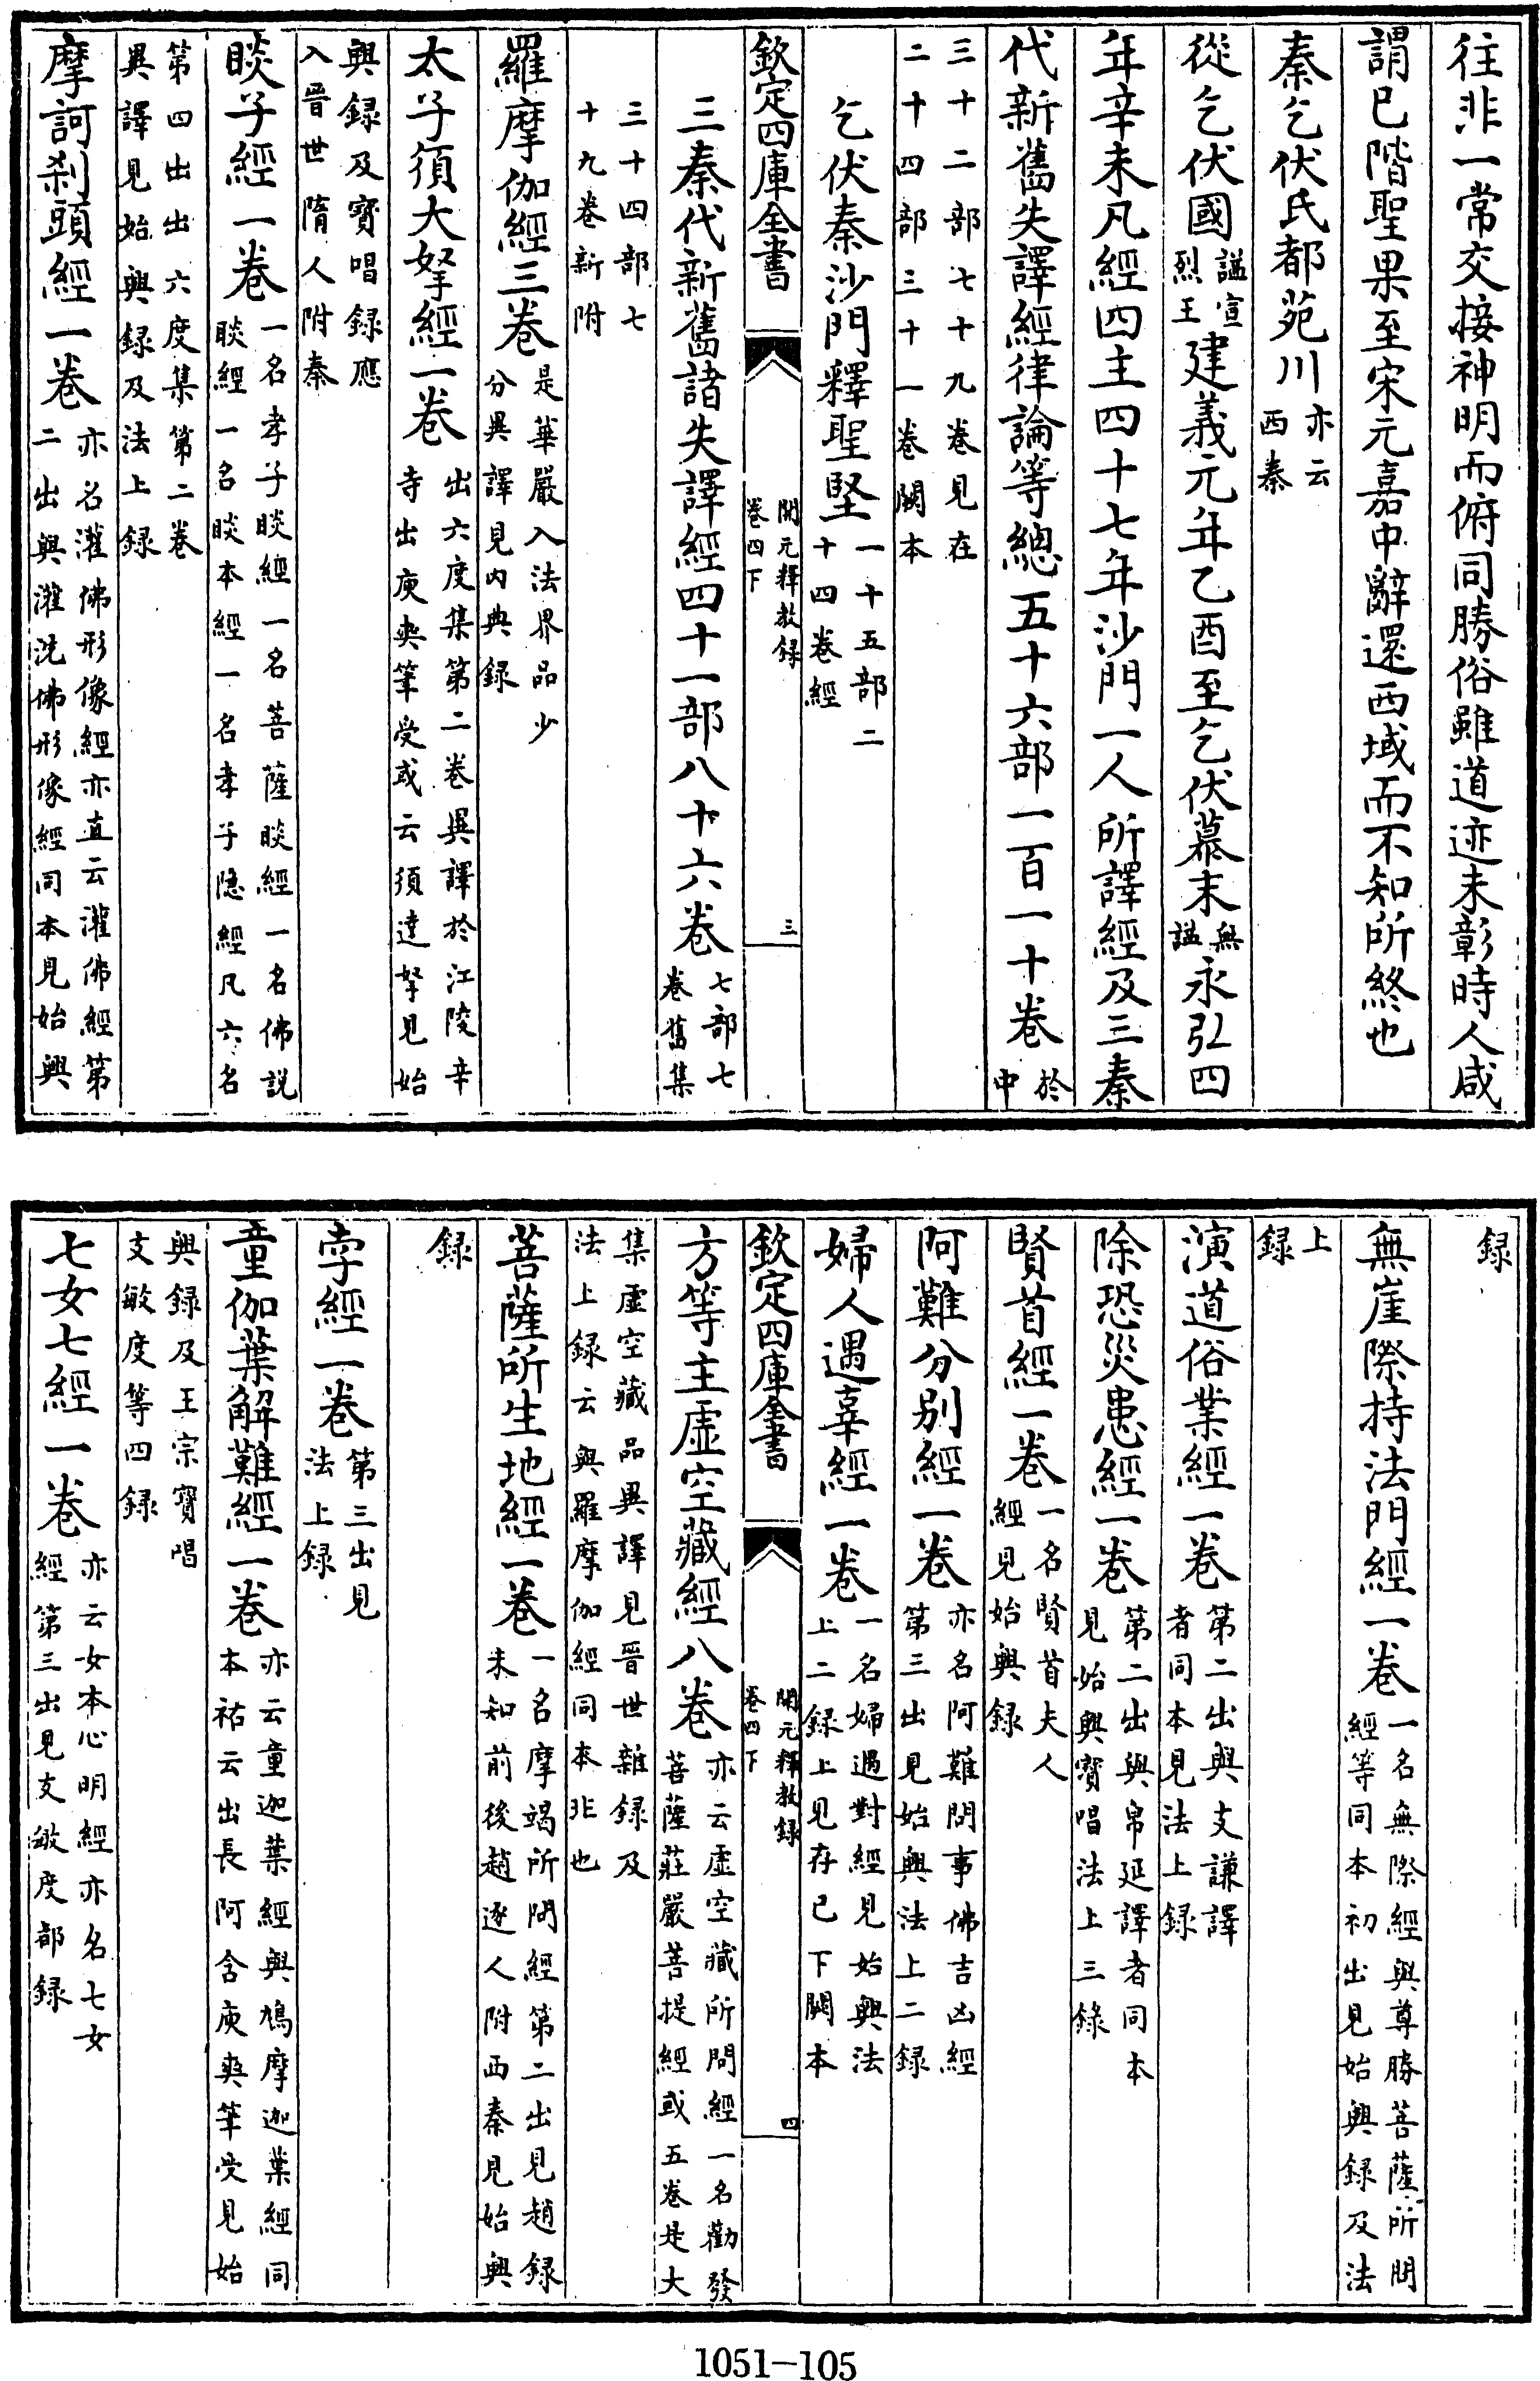 往非一常交接神明而俯同勝俗雖道迹未彰時人咸
謂已階聖果至宋元嘉中辭還西域而不知所終也
秦乞伏氏都苑川亦云西秦
從乞伏國謚宣烈王建義元年乙酉至乞伏慕末無謚永弘四
年辛未凡經四主四十七年沙門一人所譯經及三秦
代新舊失譯經律論等總五十六部一百一十卷於中
三十二部七十九卷見在
二十四部三十一卷闕本
乞伏秦沙門釋聖堅一十五部二十四卷經
欽定四庫全書
開元釋教録
卷四下
三
三秦代新舊諸失譯經四十一部八十六卷七部七卷舊集
三十四部七
十九卷新附
羅摩伽經三卷是華嚴入法界品少分異譯見内典録
太子須大拏經一卷出六度集第二卷異譯於江陵辛寺出庾爽筆受或云須達拏見始
興録及寳唱録應
入晉世隋人附秦
睒子經一卷一名孝子睒經一名菩薩睒經一名佛説睒經一名睒本經一名孝子隱經凡六名
第四出出六度集第二卷
異譯見始興録及法上録
摩訶刹頭經一卷亦名灌佛形像經亦直云灌佛經第二出與灌洗佛形像經同本見始興
録
無崖際持法門經一卷一名無際經與尊勝菩薩所問經等同本初出見始興録及法
上
録
演道俗業經一卷第二出與支謙譯者同本見法上録
除恐災患經一卷第二出與帛延譯者同本見始興寳唱法上三錄
賢首經一卷一名賢首夫人經見始興録
阿難分别經一卷亦名阿難問事佛吉凶經第三出見始興法上二録
婦人遇辜經一卷一名婦遇對經見始興法上二録上見存已下闕本
欽定四庫全書
開元釋教録
卷四下
四
方等主虚空藏經八卷亦云虚空藏所問經一名勸發菩薩莊嚴菩提經或五卷是大
集虚空藏品異譯見晉世雜録及
法上録云與羅摩伽經同本非也
菩薩所生地經一卷一名摩竭所問經第二出見趙録未知前後趙逐人附西秦見始興
録
孛經一卷第三出見法上録
童伽葉解難經一卷亦云童迦葉經與鳩摩迦葉經同本祐云出長阿含庾爽筆受見始
興録及王宗寳唱
支敏度等四録
七女七經一卷亦云女本心明經亦名七女經第三出見支敏度都録
1051-105